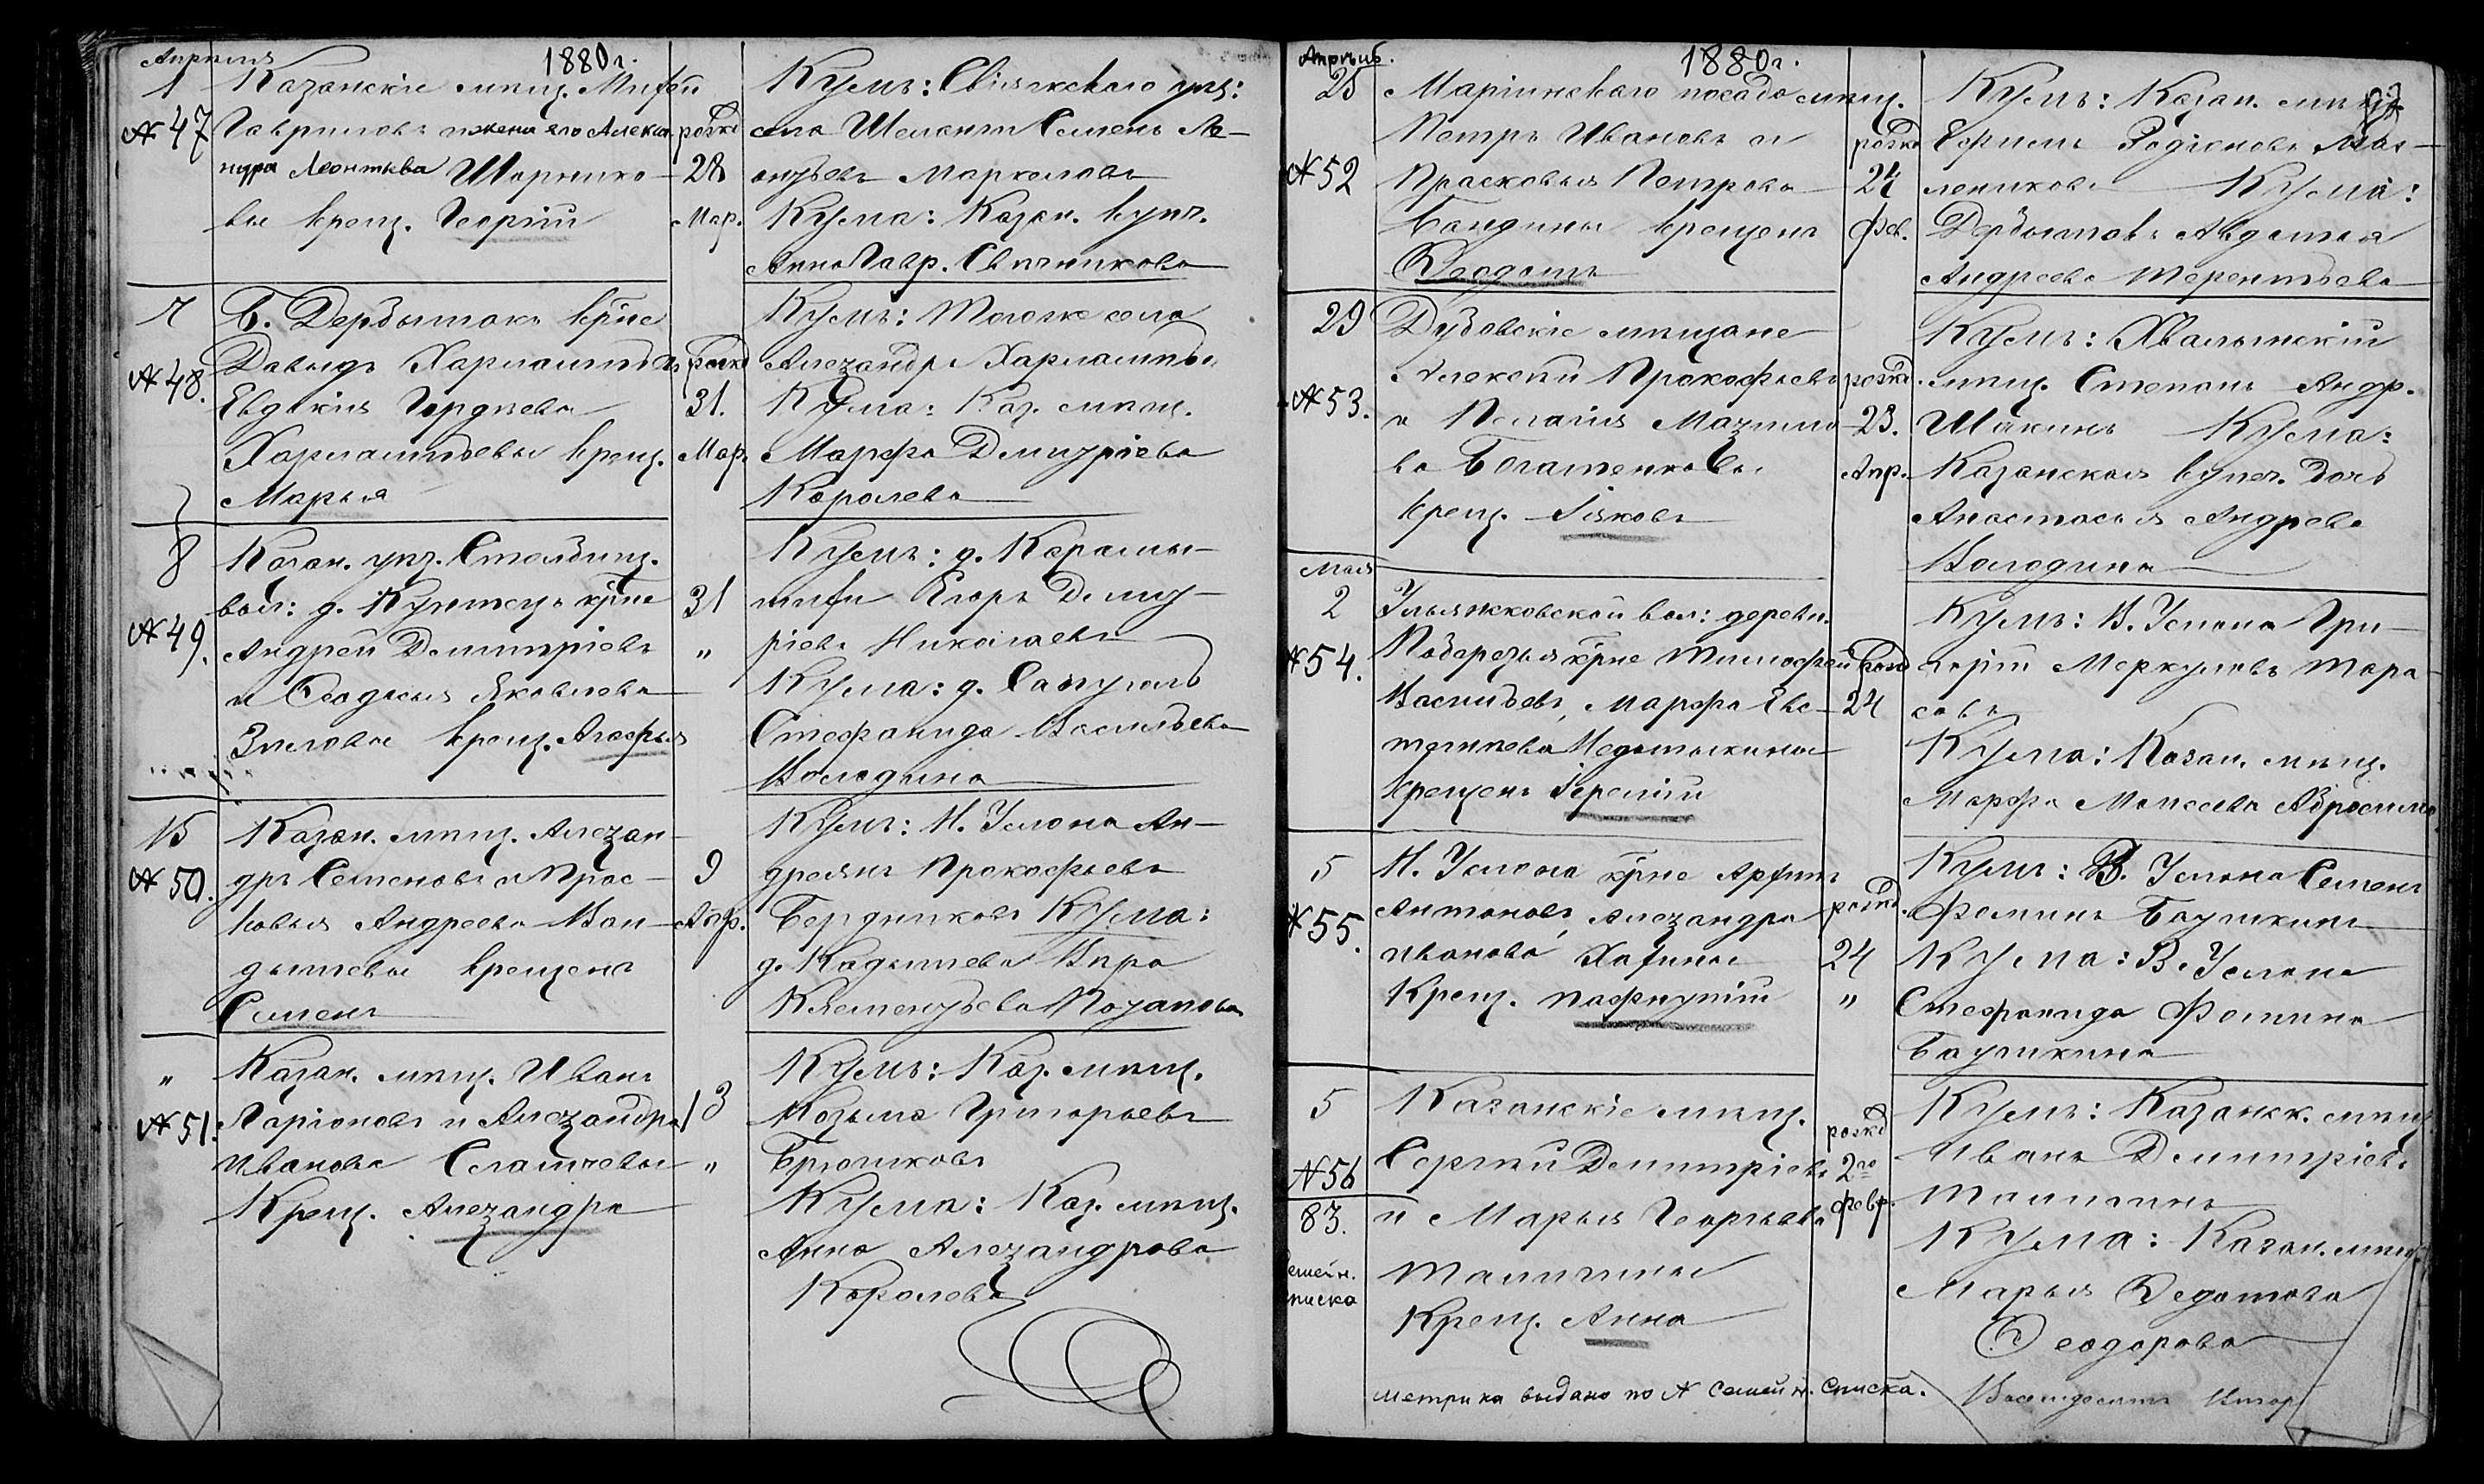 Апреля
1880 г.
1
№ 47
Казанскіе мѣщ. Матѳѣй
Гавриловъ и жена его Алексан
ндра Леонтьева Шорнико
вы крещ. Георгій
рожд
28
Мар.
Кумъ: Свіяжскаго уѣз:
села Шеланги Семенъ Ле-
онтьевъ Маркеловъ
Кума: Казан. купч.
Анна Гавр. Свѣчникова
7
№ 48.
В. Дербышокъ кр̃не
Давыдъ Харлампьевъ
Евдокія Гордѣева
Харлампьевы крещ.
Марья
рожд
31.
Мар.
Кумъ: Тогоже села
Александръ Харлампь.
Кума: Каз. мѣщ.
Марфа Дмитріева
Королева
8
№ 49.
Казан. уѣз. Столбищ.
вол: д. кр̃не
Андрей Димитріевъ
и Ѳеодосья Яковлева
крещ. Агафья
31
„
Кумъ: д.
Егоръ Дмит-
ріевъ Николаевъ
Кума: д.
Стефанида Васильева
Володина
15
№ 50.
Казан. мѣщ. Алексан-
дръ Семеновъ и Прас-
ковья Андреева Ван-
дышевы крещенъ
Семенъ
9
Апр.
Кумъ: Н. Услона Ан-
дреянъ Прокофьевъ
Бердниковъ Кума:
д. Кадышева Вѣра
Клементьева
„
№ 51.
Казан. мѣщ. Иванъ
Ларіоновъ и Александра
Иванова Салашевы
Крещ. Александра
13
„
Кумъ: Каз. мѣщ.
Козьма Григорьевъ
Брюшковъ
Кума: Каз. мѣщ.
Анна Александрова
Королева
Апрѣль.
1880 г.
25
№ 52
Маріинскаго посада мѣщ.
Петръ Ивановъ и
Прасковья Петрова
Бандины крещенъ
Ѳеодотъ
рожд
24
Фев.
Кумъ: Казан. мѣщ.
Ефимъ Родіоновъ Мас-
лениковъ Кума:
Дербышокъ Авдотья
Андреева Терентьева
29
№ 53.
Дубовскіе мѣщане
Алексѣй Прокофьевъ
и Пелагія Максимо
ва Богатенковы
крещ. Іяковъ
рожд.
23.
Апр.
Кумъ: Хвалынскій
мѣщ. Степанъ Андр.
Шикинъ Кума:
Казанская купеч. дочь
Анастасья Андреева
Володина
Мая
2
№ 54.
вол: деревн.
кр̃не Тимофей
Васильевъ, Марфа Евс-
тигнѣева Недотыкины
крещенъ Іеремій
рожд
24
Кумъ: В. Услона Гри-
горій Меркуловъ Тара-
совъ
Кума: Казан. мѣщ.
Марфа Моисеева Абросимо
5
№ 55.
Н. Услона кр̃не
Антоновъ, Александра
Иванова Хафины
Крещ. Пафнутій
рожд.
24
„
Кумъ: В. Услона Семенъ
Фоминъ Баушкинъ
Кума: В. Услона
Стефанида Фомина
Баушкина
5
№ 56
83.
семейн.
списка
Казанскіе мѣщ.
Сергѣй Димитріевъ
и Марья Георгьева
Талигины
Крещ. Анна
рожд
2го
Февр.
Кумъ: Казанск. мѣщ
Иванъ Димитріевъ
Кума: Казан. мѣщ
Марья Ѳедотова
Ѳеодорова
метрика выдана по № семейн. списка.
Восемдесятъ втор